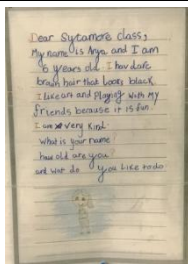 Dear Sycamore class,
My name is Anya and I am
6 years old. I have dark
brown hair that looks black.
I like art and playing with my
friends because it is fun.
I am very kind
what is your name?
how old are you?
and wat do you like to do